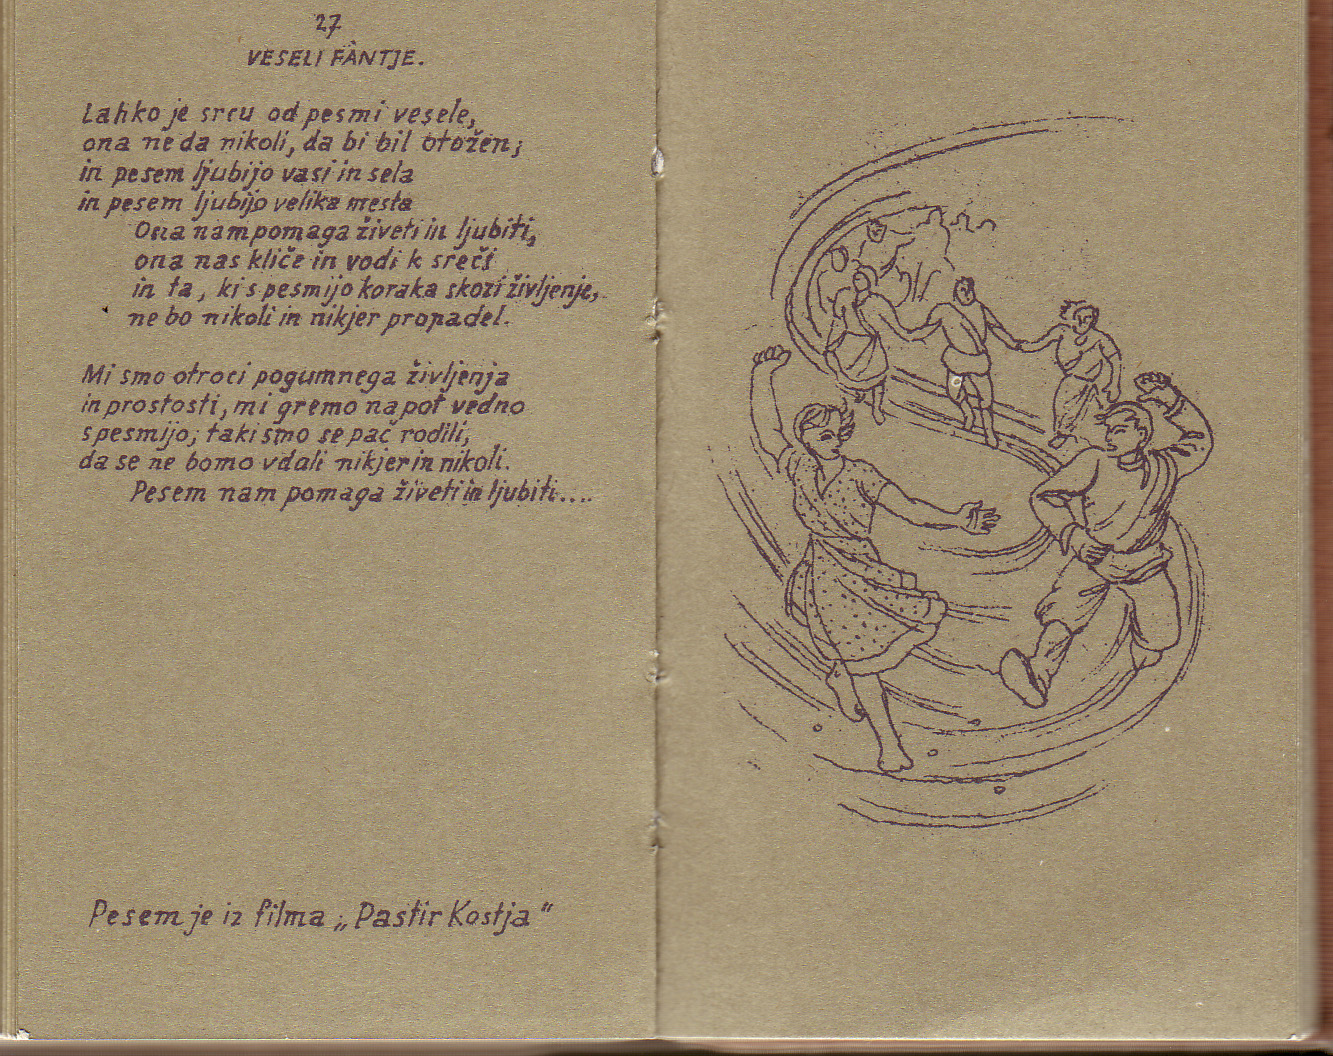 27
VESELI FANTJE.
Lahko je srcu od pesmi vesele,
ona ne da nikoli, da bi bil otožen;
in pesem ljubijo vasi in sela
in pesem ljubijo velika mesta
Ona nam pomaga živeti in ljubiti,
ona nas kliče in vodi k sreči
in ta, ki s pesmijo koraka skozi življenje,
ne bo nikoli in nikjer propadel.
Mi smo otroci pogumnega življenja
in prostosti, mi gremo na pot vedno
s pesmijo; taki smo se pač rodili,
da se ne bomo vdali nikjer in nikoli.
Pesem nam pomaga živeti in ljubiti....
Pesem je iz filma „Pastir Kostja“